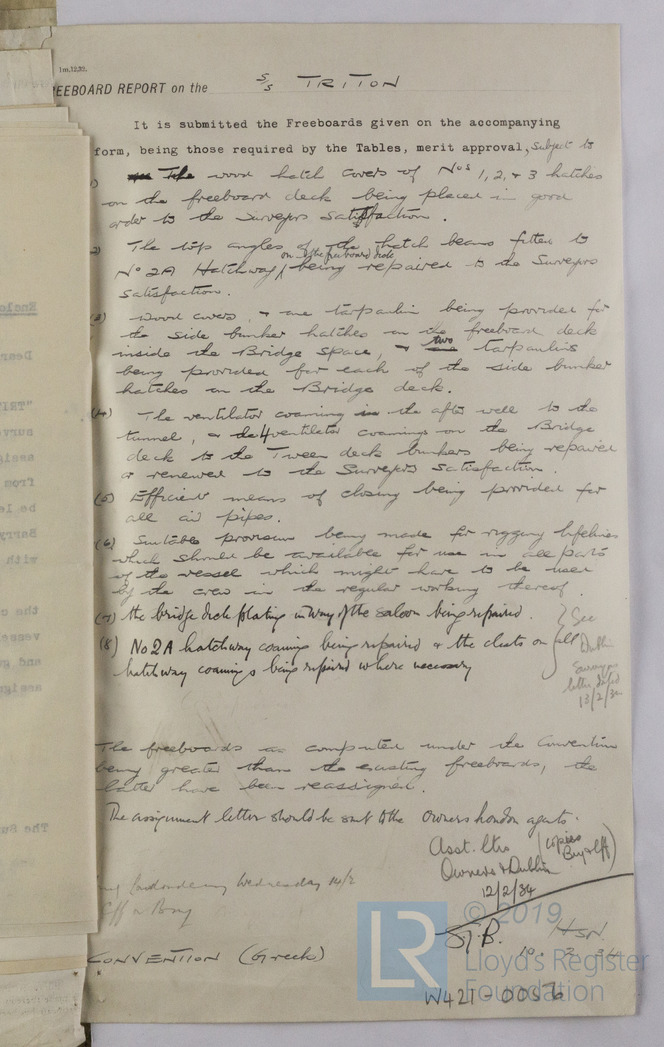 1m.12.32.
REEBOARD REPORT on the S/S TRITON
It is submitted the Freeboards given on the accompanying
form, being those required by the Tables, merit approval, subject to
1) The wood hatch covers of Nos 1, 2, + 3 hatches
on the freeboard deck being placed in good
order to the Surveyors satisfaction.
2) The top angles of the hatch beams fitted to
on the freeboard deck
No 2A Hatchway being repaired to the Surveyors
satisfaction.
(3) Wood covers, + one tarpaulin being provided for
the side bunker hatches on the freeboard deck
inside the Bridge space, + two tarpaulins
being provided for each of the side bunker
hatches on the Bridge deck.
(4) The ventilator coaming in the after well to the
tunnel, + the 4 ventilator coamings on the Bridge
deck to the Tween deck bunkers being repaired
or renewed to the Surveyors satisfaction.
(5) Efficient means of closing being provided for
all air pipes.
(6) Suitable provision being made for rigging lifelines
which should be available for use in all parts
of the vessel which might have to be used
by the crew in the regular working thereof.
(7) the bridge deck plating in way of the saloon being repaired.
(8) No 2A hatchway coaming being repaired + the cleats on all
hatchway coamings being repaired where necessary
See
Dublin
Surveyors
letter dated
13/2/34
The freeboards as computed under the Convention
being greater than the existing freeboards, the
latter have been reassigned.
The assignment letter should be sent to the Owners London agents.
Asst. ltrs
Owners + Dublin
(copies
Bry + Cff)
12/2/34
Londonderry Wednesday 14/2
Cff or Barry
S.J.B.
HSN
10. 2 34
CONVENTION (Greek)
W421-0056
© 2019
LR
Lloyd's Register
Foundation
Enclo
Dear
"TRIT
surve
assig
from
be le
Barry
with
the c
vesse
and g
assig
The Su